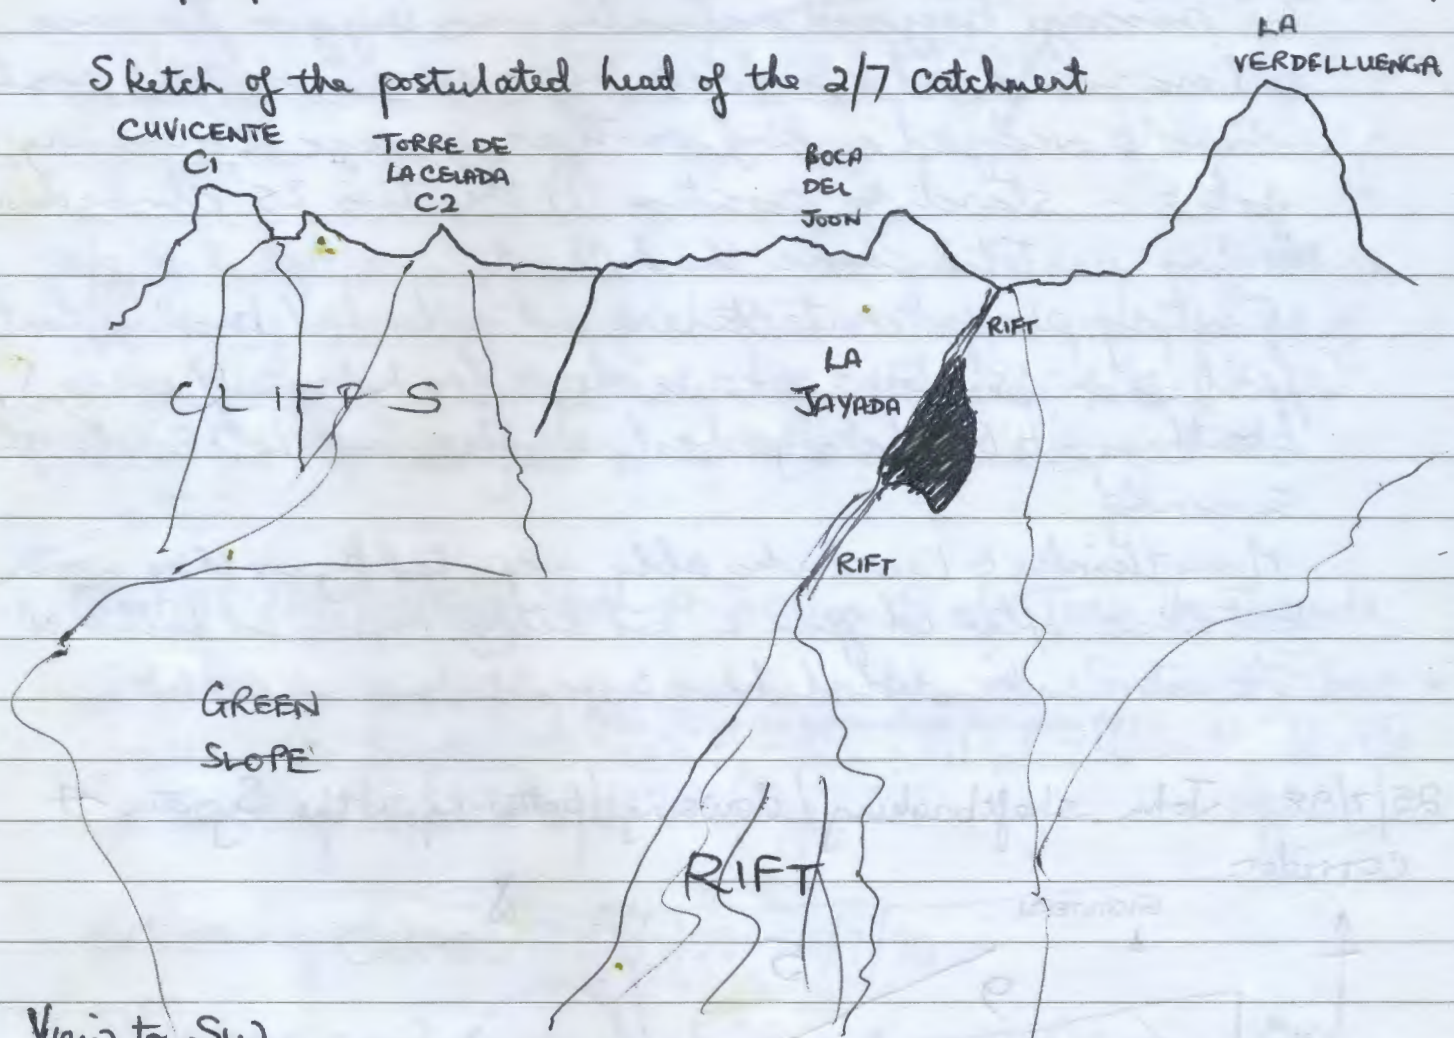 Sketch of the postulated head of the 2/7 catchment
LA
VERDELLUENGA
CUVICENTE
C1
TORRE DE
LA CELADA
C2
BOCA
DEL
JOON
RIFT
LA
JAYADA
CLIFFS
RIFT
GREEN
SLOPE
RIFT
View to SW